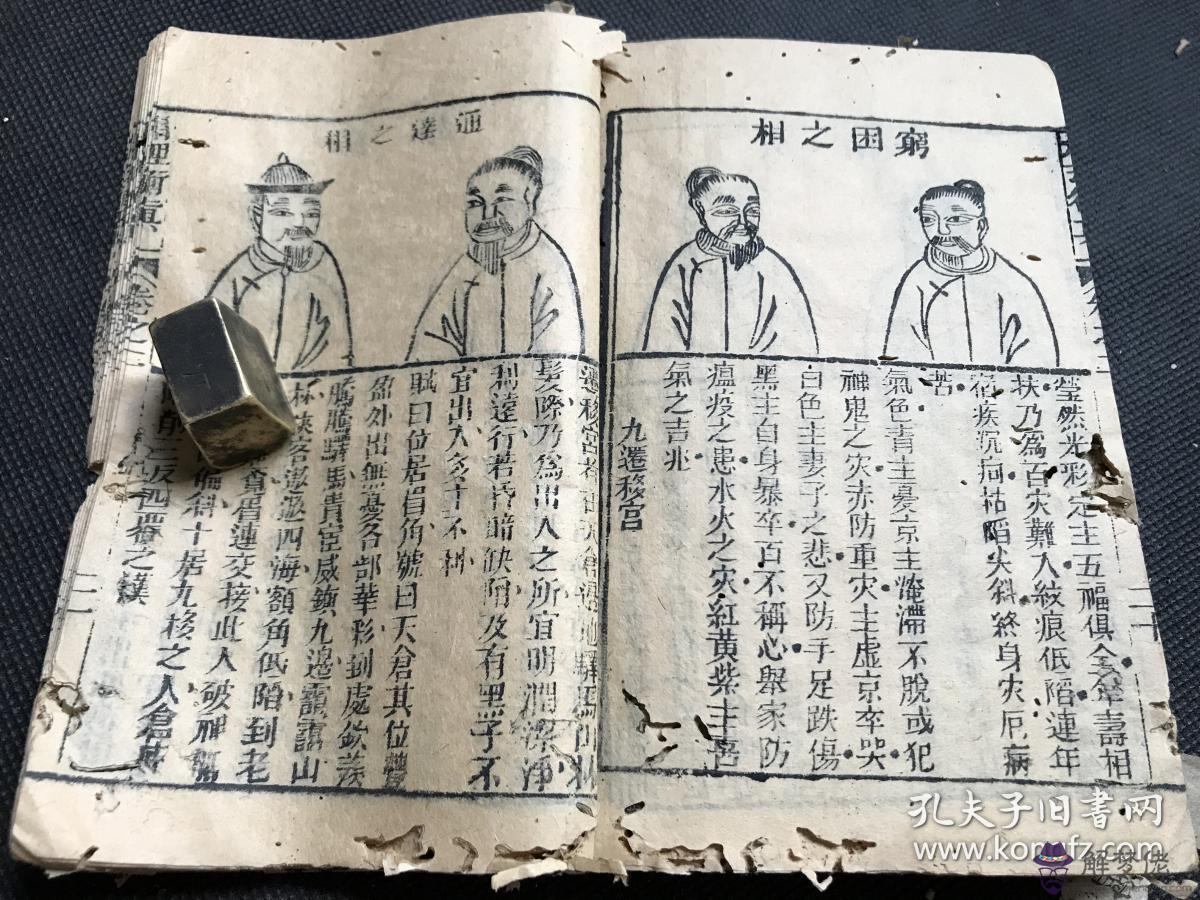 窮困之相
瑩然光彩定主五福俱全年壽相
扶乃為百灾難入紋痕低陷連年
宿疾沉疴枯陷尖斜終身灾厄病
苦
氣色青主憂京主淹滯不脫或犯
神鬼之灾赤防重灾主虛京卒哭
白色主妻子之悲又防手足跌傷
黑主自身暴卒百不稱心舉家防
瘟疫之患水火之灾紅黃紫主喜
氣之吉兆
九遷移宮
二十
通達之相
遷移宮者
髮際乃為出入之所宜明潤潔淨
利遠行若昏暗缺陷及有黑子不
宜出入多十不利
賦曰位居眉角號曰天倉其位豐
盈外出無憂各部華彩到處欽羨
騰騰驛馬貴宦威鎮九邊靄靄山
林俠客遨遊四海額角低陷到老
眉連交接此人破
偏斜十居九移之人倉
卷之
孔夫子旧書网
www.kongfz.com
解梦佬